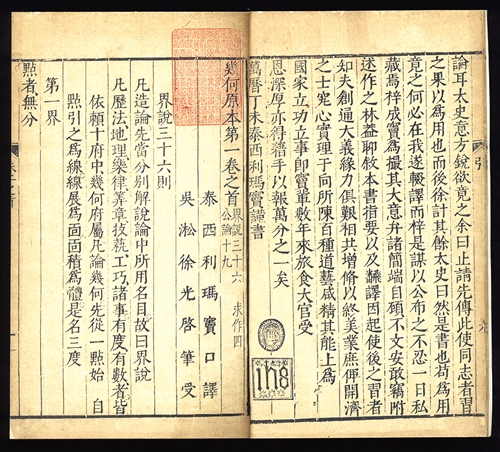 論耳太史意方銳欲竟之余曰止請先傳此使同志者習
之果以為用也而後徐計其餘太史曰然是書也苟為用
竟之何必在我遂輟譯而梓是謀以公布之不忍一日私
藏焉梓成竇為撮其大意弁諸簡端自顧不文安敢竊附
述作之林蓋聊敘本書指要以及翻譯因起使後之習者
知夫創通大義緣力俱艱相共增脩以終美業庶俾開濟
之士究心實理于向所陳百種道藝咸精其能上為
國家立功立事即竇輩數年來旅食大官受
恩深厚亦得藉手以報萬分之一矣
萬曆丁未泰西利瑪竇謹書
ihs
引
幾何原本第一卷之首 界說三十六 公論十九 求作四
泰西利瑪竇口譯
吳淞徐光啓筆受
界說三十六則
凡造論先當分別解說論中所用名目故曰界說
凡歷法地理樂律算章技藝工巧諸事有度有數者皆
依賴十府中幾何府屬凡論幾何先從一點始自
點引之為線線展為面面積為體是名三度
第一界
點者無分